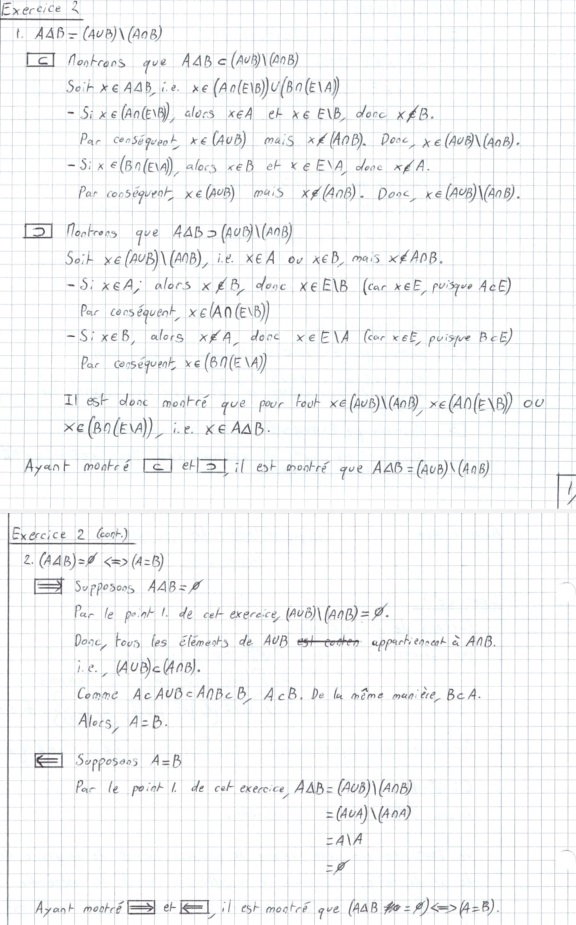 Exercice 2
1. A∆B = (A∪B)\(A∩B)
⊂ Montrons que A∆B ⊂ (A∪B)\(A∩B)
Soit x ∈ A∆B, i.e. x ∈ (A∩(E\B))∪(B∩(E\A))
- Si x ∈ (A∩(E\B)), alors x∈A et x ∈ E\B, donc x∉B.
Par conséquent, x ∈ (A∪B) mais x∉(A∩B). Donc, x∈(A∪B)\(A∩B).
- Si x ∈ (B∩(E\A)), alors x∈B et x ∈ E\A, donc x∉A.
Par conséquent, x∈(A∪B) mais x∉(A∩B). Donc, x∈(A∪B)\(A∩B).
⊃ Montrons que A∆B ⊃ (A∪B)\(A∩B)
Soit x∈(A∪B)\(A∩B), i.e. x∈A ou x∈B, mais x∉A∩B.
- Si x∈A, alors x∉B, donc x∈E\B (car x∈E, puisque A⊂E)
Par conséquent, x∈(A∩(E\B))
- Si x∈B, alors x∉A, donc x∈E\A (car x∈E, puisque B⊂E)
Par conséquent, x∈(B∩(E\A))
Il est donc montré que pour tout x∈(A∪B)\(A∩B), x∈(A∩(E\B)) OU
x∈(B∩(E\A)), i.e. x∈A∆B.
Ayant montré ⊂ et ⊃, il est montré que A∆B = (A∪B)\(A∩B)
1
Exercice 2 (cont.)
2. (A∆B)=∅ <=> (A=B)
⇒ Supposons A∆B = ∅
Par le point 1. de cet exercice, (A∪B)\(A∩B) = ∅.
Donc, tous les éléments de A∪B appartiennent à A∩B.
i.e., (A∪B)⊂(A∩B).
Comme A⊂A∪B⊂A∩B⊂B, A⊂B. De la même manière, B⊂A.
Alors, A=B.
⇐ Supposons A=B
Par le point 1. de cet exercice, A∆B = (A∪B)\(A∩B)
= (A∪A)\(A∩A)
= A\A
= ∅
Ayant montré ⇒ et ⇐, il est montré que (A∆B = ∅) <=> (A=B).